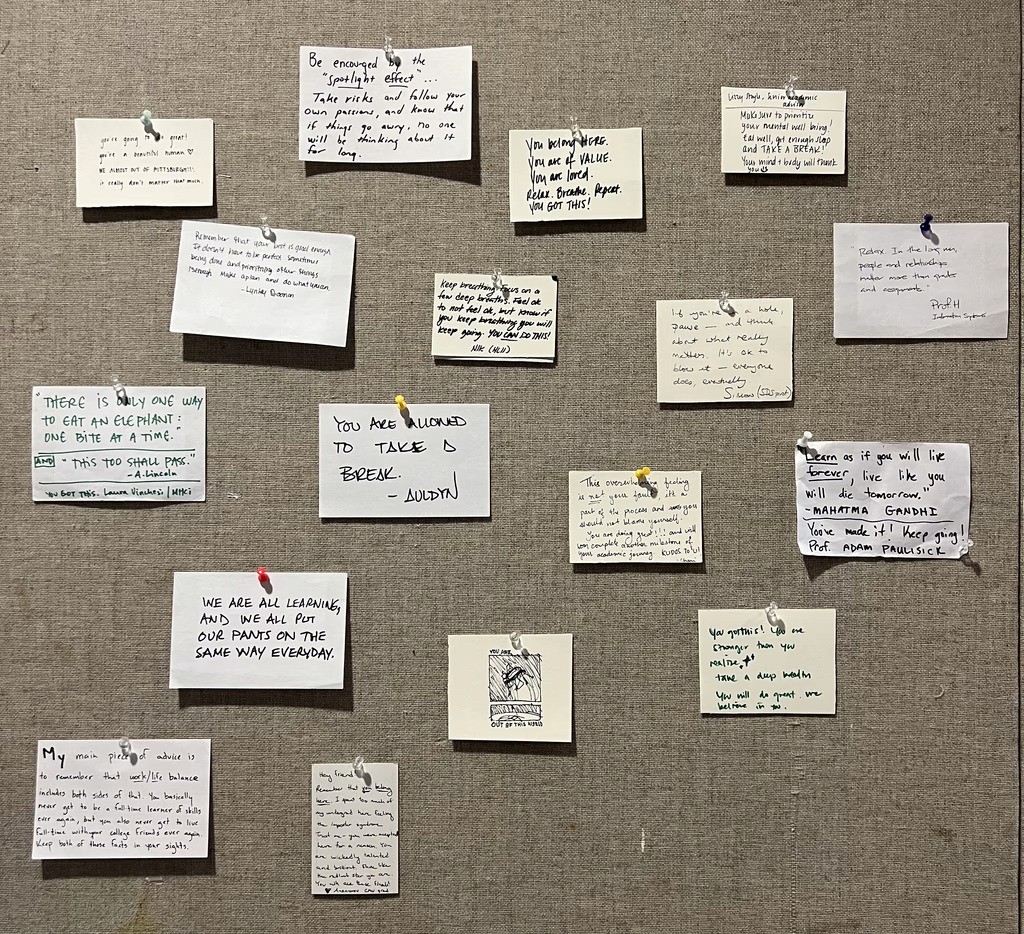 Be encouraged by the
"spotlight effect"...
Take risks and follow your
own passions, and know that
if things go awry, no one
will be thinking about it
for long.
you're going to be great!
you're a beautiful human ♡
WE ALMOST OUT OF PITTSBURGH!!!
it really don't matter that much.
You belong HERE.
You are of VALUE.
You are loved.
Relax. Breathe. Repeat.
YOU GOT THIS!
academic
advisor
Make sure to prioritize
your mental well being!
Eat well, get enough sleep
and TAKE A BREAK!
Your mind + body will thank
you
Remember that your best is good enough.
It doesn't have to be perfect. Sometimes
being done and prioritizing other things
is enough. Make a plan and do what you can.
Keep breathing. Focus on a
few deep breaths. Feel ok
to not feel ok, but know if
you keep breathing you will
keep going. YOU CAN DO THIS!
Nik (HCII)
"Relax. In the long run,
people and relationships
matter more than grades
and assignments."
Prof. H
Information Systems
If you're in a hole,
pause — and think
about what really
matters. It's ok to
blow it — everyone
does, eventually
"THERE IS ONLY ONE WAY
TO EAT AN ELEPHANT:
ONE BITE AT A TIME."
AND "THIS TOO SHALL PASS."
-A. Lincoln
YOU GOT THIS. Laura
YOU ARE ALLOWED
TO TAKE A
BREAK.
- AULDYN
This overwhelming feeling
is not your fault, it's a
part of the process and you
should not blame yourself.
You are doing great!!! and will
soon complete another milestone of
your academic journey. KUDOS TO U!
Learn as if you will live
forever, live like you
will die tomorrow."
-MAHATMA GANDHI
You've made it! Keep going!
Prof. ADAM PAULISICK
WE ARE ALL LEARNING,
AND WE ALL PUT
OUR PANTS ON THE
SAME WAY EVERYDAY.
YOU ARE
OUT OF THIS WORLD
You got this! You are
stronger than you
realize
take a deep breath
You will do great. We
believe in you.
My main piece of advice is
to remember that work/life balance
includes both sides of that. You basically
never get to be a full-time learner of skills
ever again, but you also never get to live
full-time with your college friends ever again
Keep both of those facts in your sights.
Hey friend
Remember that you belong
here. I spent too much of
my undergrad here feeling
the imposter syndrome.
Trust me - you were accepted
here for a reason. You
are wickedly talented
and brilliant. Shine like
the radiant star you are.